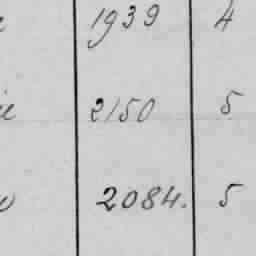 1939 4
2150 5
2084. 5